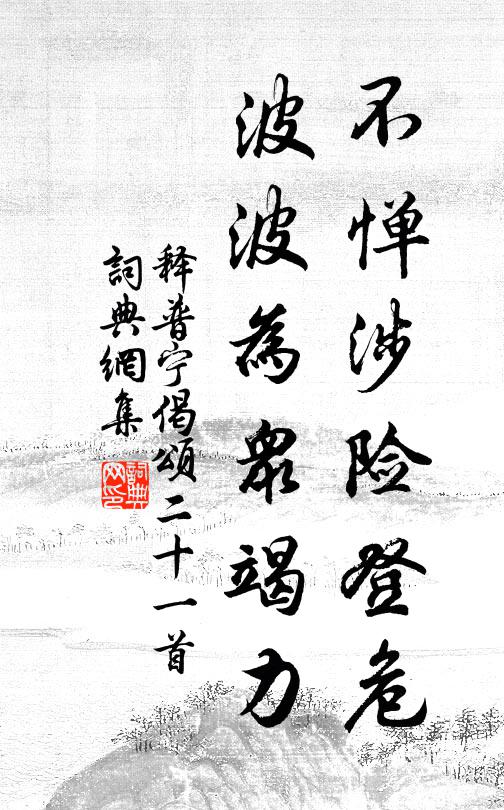 不惮涉险登危
波波為眾竭力
释普宁偈頌二十一首
詞典網集
詞典网印